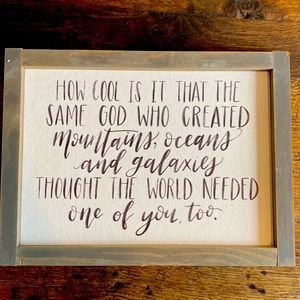 HOW COOL IS IT THAT THE
SAME GOD WHO CREATED
mountains, oceans
and galaxies
THOUGHT THE WORLD NEEDED
one of you, too.